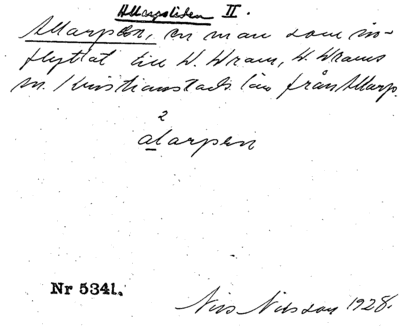 Allarpslisten II.
Allarpen, en man som in-
flyttat till W. Wram, W. Wrams
sn. Kristianstads län från Allarp.
2
alarpen
Nr 5341.
Nils Nilsson 1928.